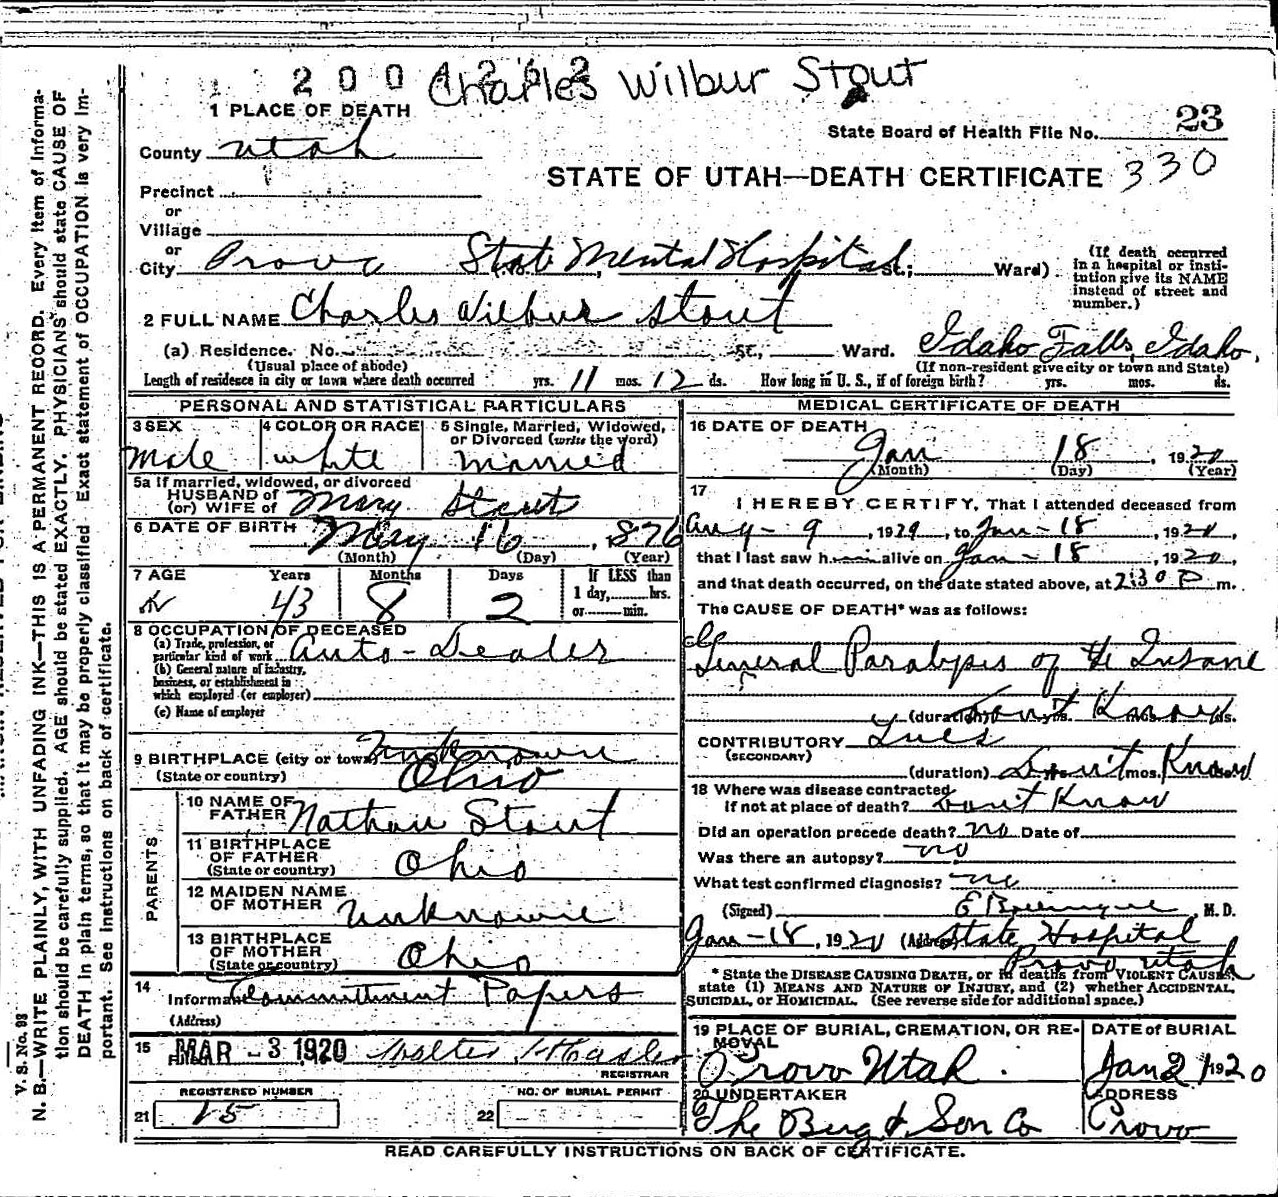 2004262 Charles Wilbur Stout
1 PLACE OF DEATH
State Board of Health File No. 23
County Utah
STATE OF UTAH—DEATH CERTIFICATE 330
Precinct
or
Village
or
City Provo State Mental Hospital St.; Ward)
(If death occurred in a hospital or insti-
tution give its NAME instead of street and number.)
2 FULL NAME Charles Wilbur Stout
(a) Residence. No. St., Ward. Idaho Falls, Idaho.
(Usual place of abode) (If non-resident give city or town and State)
Length of residence in city or town where death occurred yrs. 11 mos. 12 ds. How long in U. S., if of foreign birth? yrs. mos. ds.
PERSONAL AND STATISTICAL PARTICULARS
3 SEX Male
4 COLOR OR RACE white
5 Single, Married, Widowed, or Divorced (write the word) Married
5a If married, widowed, or divorced
HUSBAND of
(or) WIFE of Mary Stout
6 DATE OF BIRTH May 16, 1876
(Month) (Day) (Year)
7 AGE Years Months Days If LESS than
43 8 2 1 day, hrs.
or min.
8 OCCUPATION OF DECEASED
(a) Trade, profession, or
particular kind of work Auto-Dealer
(b) General nature of industry,
business, or establishment in
which employed (or employer)
(c) Name of employer
9 BIRTHPLACE (city or town) Unknown
(State or country) Ohio
PARENTS
10 NAME OF FATHER Nathan Stout
11 BIRTHPLACE OF FATHER (State or country) Ohio
12 MAIDEN NAME OF MOTHER Unknown
13 BIRTHPLACE OF MOTHER (State or country) Ohio
14 Informant Commitment Papers
(Address)
15 Filed MAR -3 1920 Walter
REGISTRAR
REGISTERED NUMBER NO. OF BURIAL PERMIT
21 15 22
MEDICAL CERTIFICATE OF DEATH
16 DATE OF DEATH
Jan 18, 1920
(Month) (Day) (Year)
17 I HEREBY CERTIFY, That I attended deceased from
Aug-9, 1929, to Jan-18, 1920,
that I last saw h alive on Jan-18, 1920,
and that death occurred, on the date stated above, at 2:30 P m.
The CAUSE OF DEATH* was as follows:
General Paralysis of the Insane
(duration) Don't Know yrs. mos. ds.
CONTRIBUTORY Lues
(SECONDARY)
(duration) Don't Know yrs. mos. ds.
18 Where was disease contracted
if not at place of death? Don't Know
Did an operation precede death? no Date of
Was there an autopsy? no
What test confirmed diagnosis? no
(Signed) M. D.
Jan-18, 1920 (Address) State Hospital
Provo Utah
* State the DISEASE CAUSING DEATH, or in deaths from VIOLENT CAUSES
state (1) MEANS AND NATURE OF INJURY, and (2) whether ACCIDENTAL,
SUICIDAL, or HOMICIDAL. (See reverse side for additional space.)
19 PLACE OF BURIAL, CREMATION, OR RE-
MOVAL
Provo Utah.
DATE of BURIAL
Jan 21 1920
20 UNDERTAKER
The Berg & Son Co
ADDRESS
Provo
READ CAREFULLY INSTRUCTIONS ON BACK OF CERTIFICATE.
V. S. No. 98
N. B.—WRITE PLAINLY, WITH UNFADING INK—THIS IS A PERMANENT RECORD. Every item of informa-
tion should be carefully supplied. AGE should be stated EXACTLY. PHYSICIANS should state CAUSE OF
DEATH in plain terms, so that it may be properly classified. Exact statement of OCCUPATION is very im-
portant. See instructions on back of certificate.